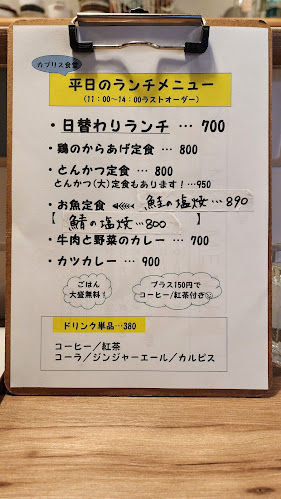 カプリス食堂
平日のランチメニュー
(11:00〜14:00ラストオーダー)
・日替わりランチ … 700
・鶏のからあげ定食 … 800
・とんかつ定食 … 800
とんかつ(大)定食もあります!…950
・お魚定食 鮭の塩焼…890
【鯖の塩焼…800 】
・牛肉と野菜のカレー … 700
・カツカレー … 900
ごはん
大盛無料!
プラス150円で
コーヒー/紅茶付き
ドリンク単品…380
コーヒー/紅茶
コーラ/ジンジャーエール/カルピス